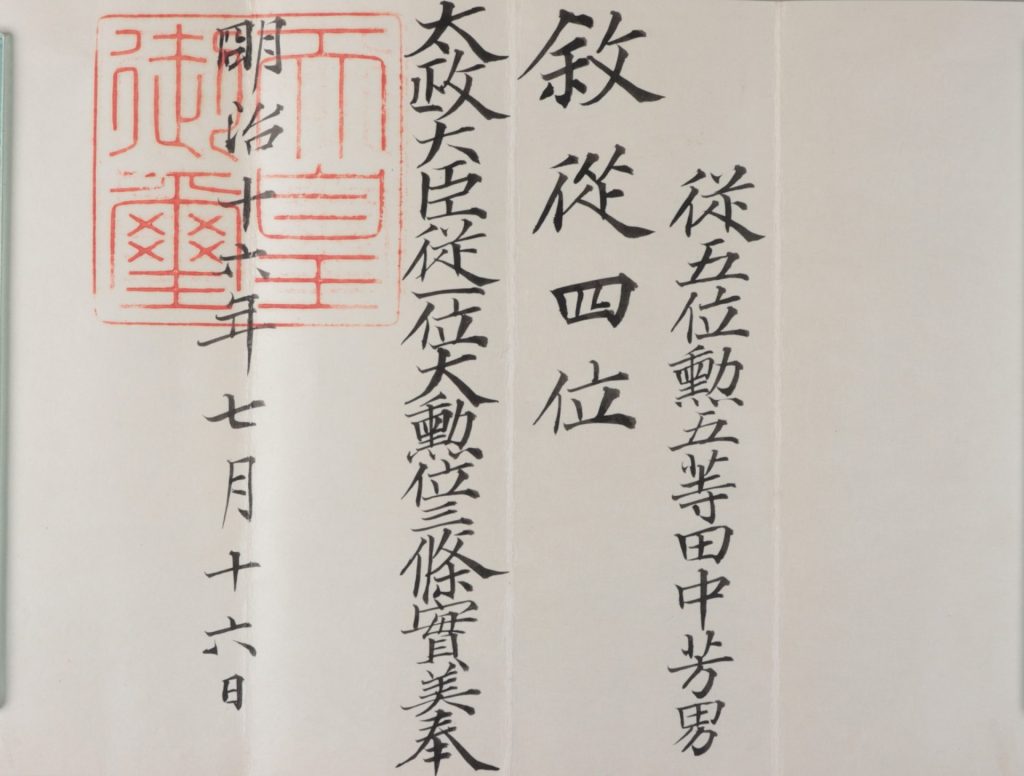 従五位勲五等田中芳男
敘從四位
太政大臣従一位大勲位三條實美奉
明治十六年七月十六日
天皇
御璽